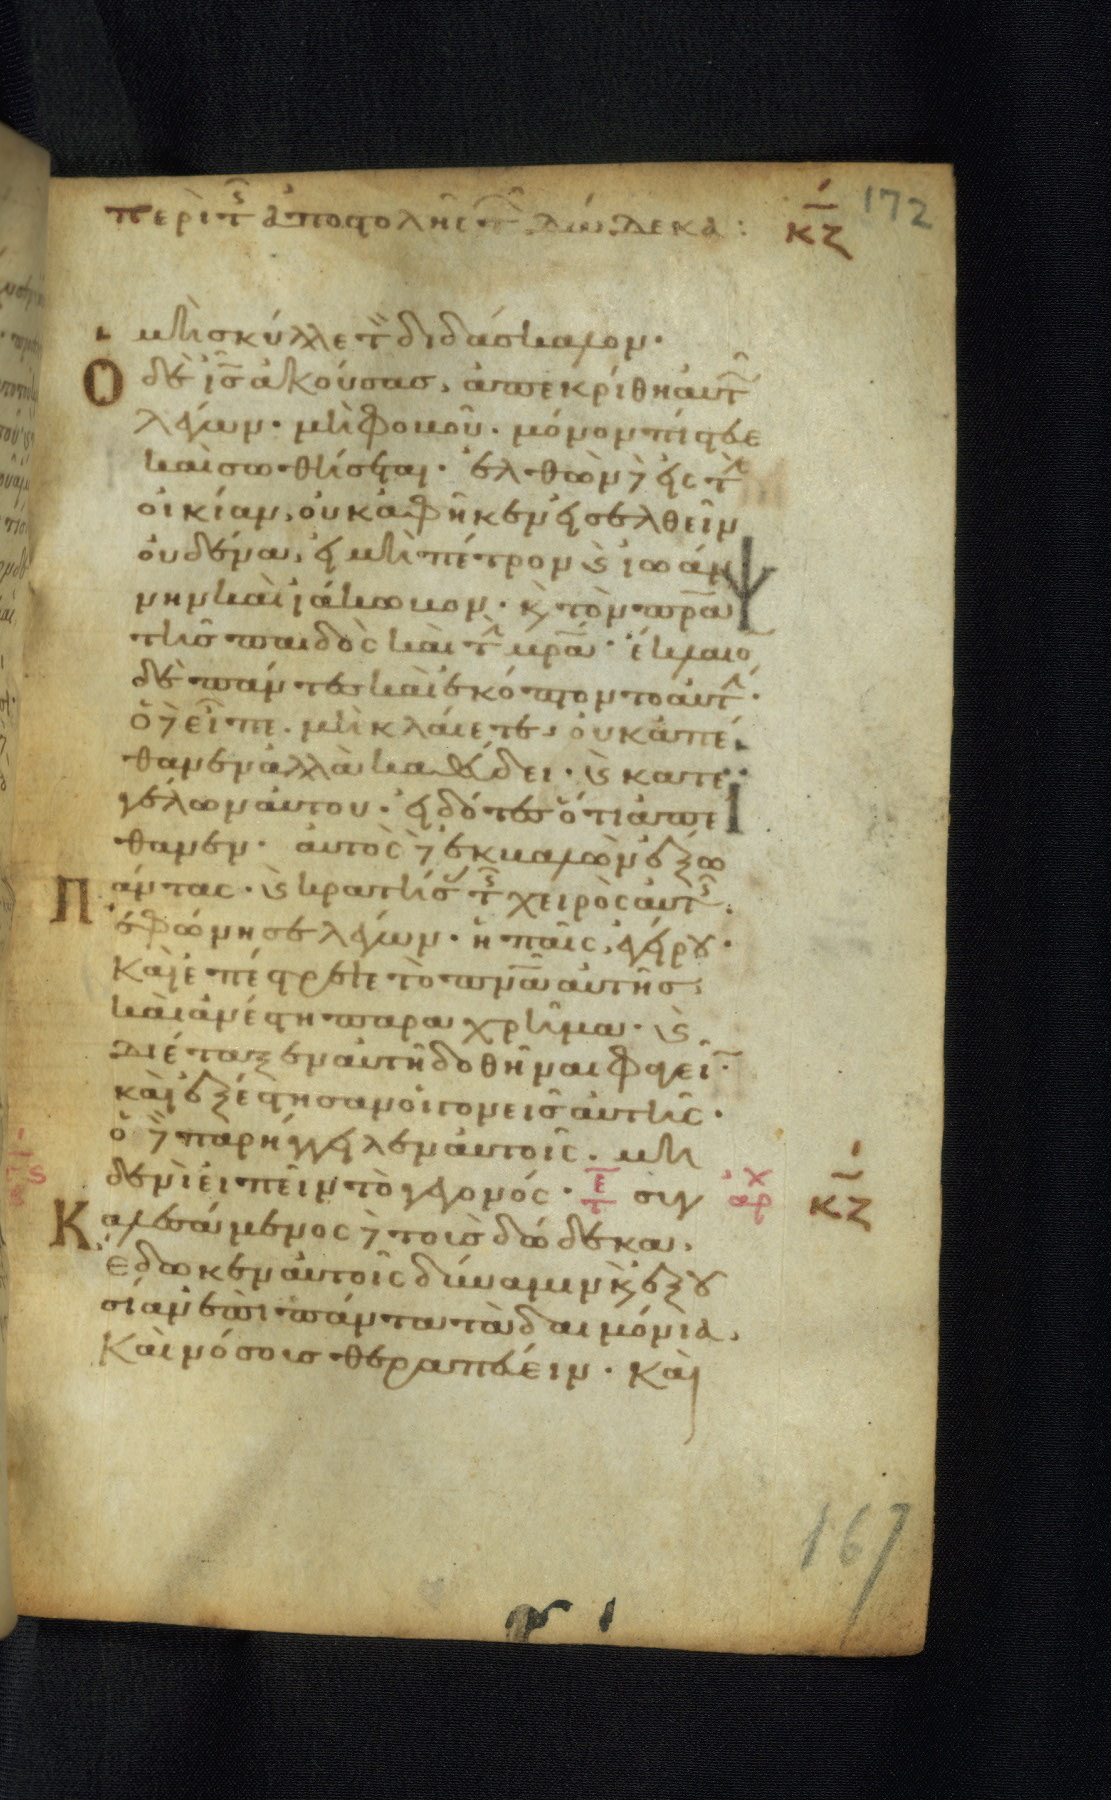 περὶ τ(ῆς) ἀποστολῆς τ(ῶν) δώδεκα :
κζ
172
μὴ σκύλλε τ(ὸν) διδάσκαλον·
Ὁ δὲ ἰ̅ς̅ ἀκούσας, ἀπεκρίθη αὐτ(ῷ)
λέγων· μὴ φοβοῦ· μόνον πίστευε
καὶ σωθήσεται· ἐλθὼν δὲ εἰς τ(ὴν)
οἰκίαν, οὐκ ἀφῆκεν εἰσελθεῖν
οὐδένα, εἰ μὴ πέτρον κ(αὶ) ἰωάν
νην καὶ ἰάκωβον· κ(αὶ) τὸν π̅ρ̅α̅
τῆς παιδὸς καὶ τ(ὴν) μ̅ρ̅α̅· ἔκλαιο(ν)
δὲ πάντες καὶ ἐκόπτοντο αὐτ(ήν)·
ὁ δὲ εἶπε· μὴ κλαίετε, οὐκ ἀπέ
θανεν ἀλλὰ καθεύδει· κ(αὶ) κατε
γέλων αὐτοῦ· εἰδότες ὅτι ἀπέ
θανεν· αὐτὸς δὲ ἐκβαλὼν ἔξω
Πάντας· κ(αὶ) κρατήσ(ας) τ(ῆς) χειρὸς αὐτ(ῆς),
ἐφώνησε λέγων· ἡ παῖς, ἐγείρου·
Καὶ ἐπέστρεψε τὸ π̅ν̅α̅ αὐτῆς,
καὶ ἀνέστη παραχρῆμα· κ(αὶ)
διέταξεν αὐτῇ δοθῆναι φαγεῖ(ν)·
καὶ ἐξέστησαν οἱ γονεῖς αὐτῆς·
ὁ δὲ παρήγγειλεν αὐτοῖς· μη
δενὶ εἰπεῖν τὸ γεγονός· τε σιγ αρχ κζ
Καλεσάμενος δὲ τοὺς δώδεκα,
Ἔδωκεν αὐτοῖς δύναμιν κ(αὶ) ἐξου
σίαν ἐπὶ πάντα τὰ δαιμόνια,
Καὶ νόσους θεραπεύειν· καὶ
167